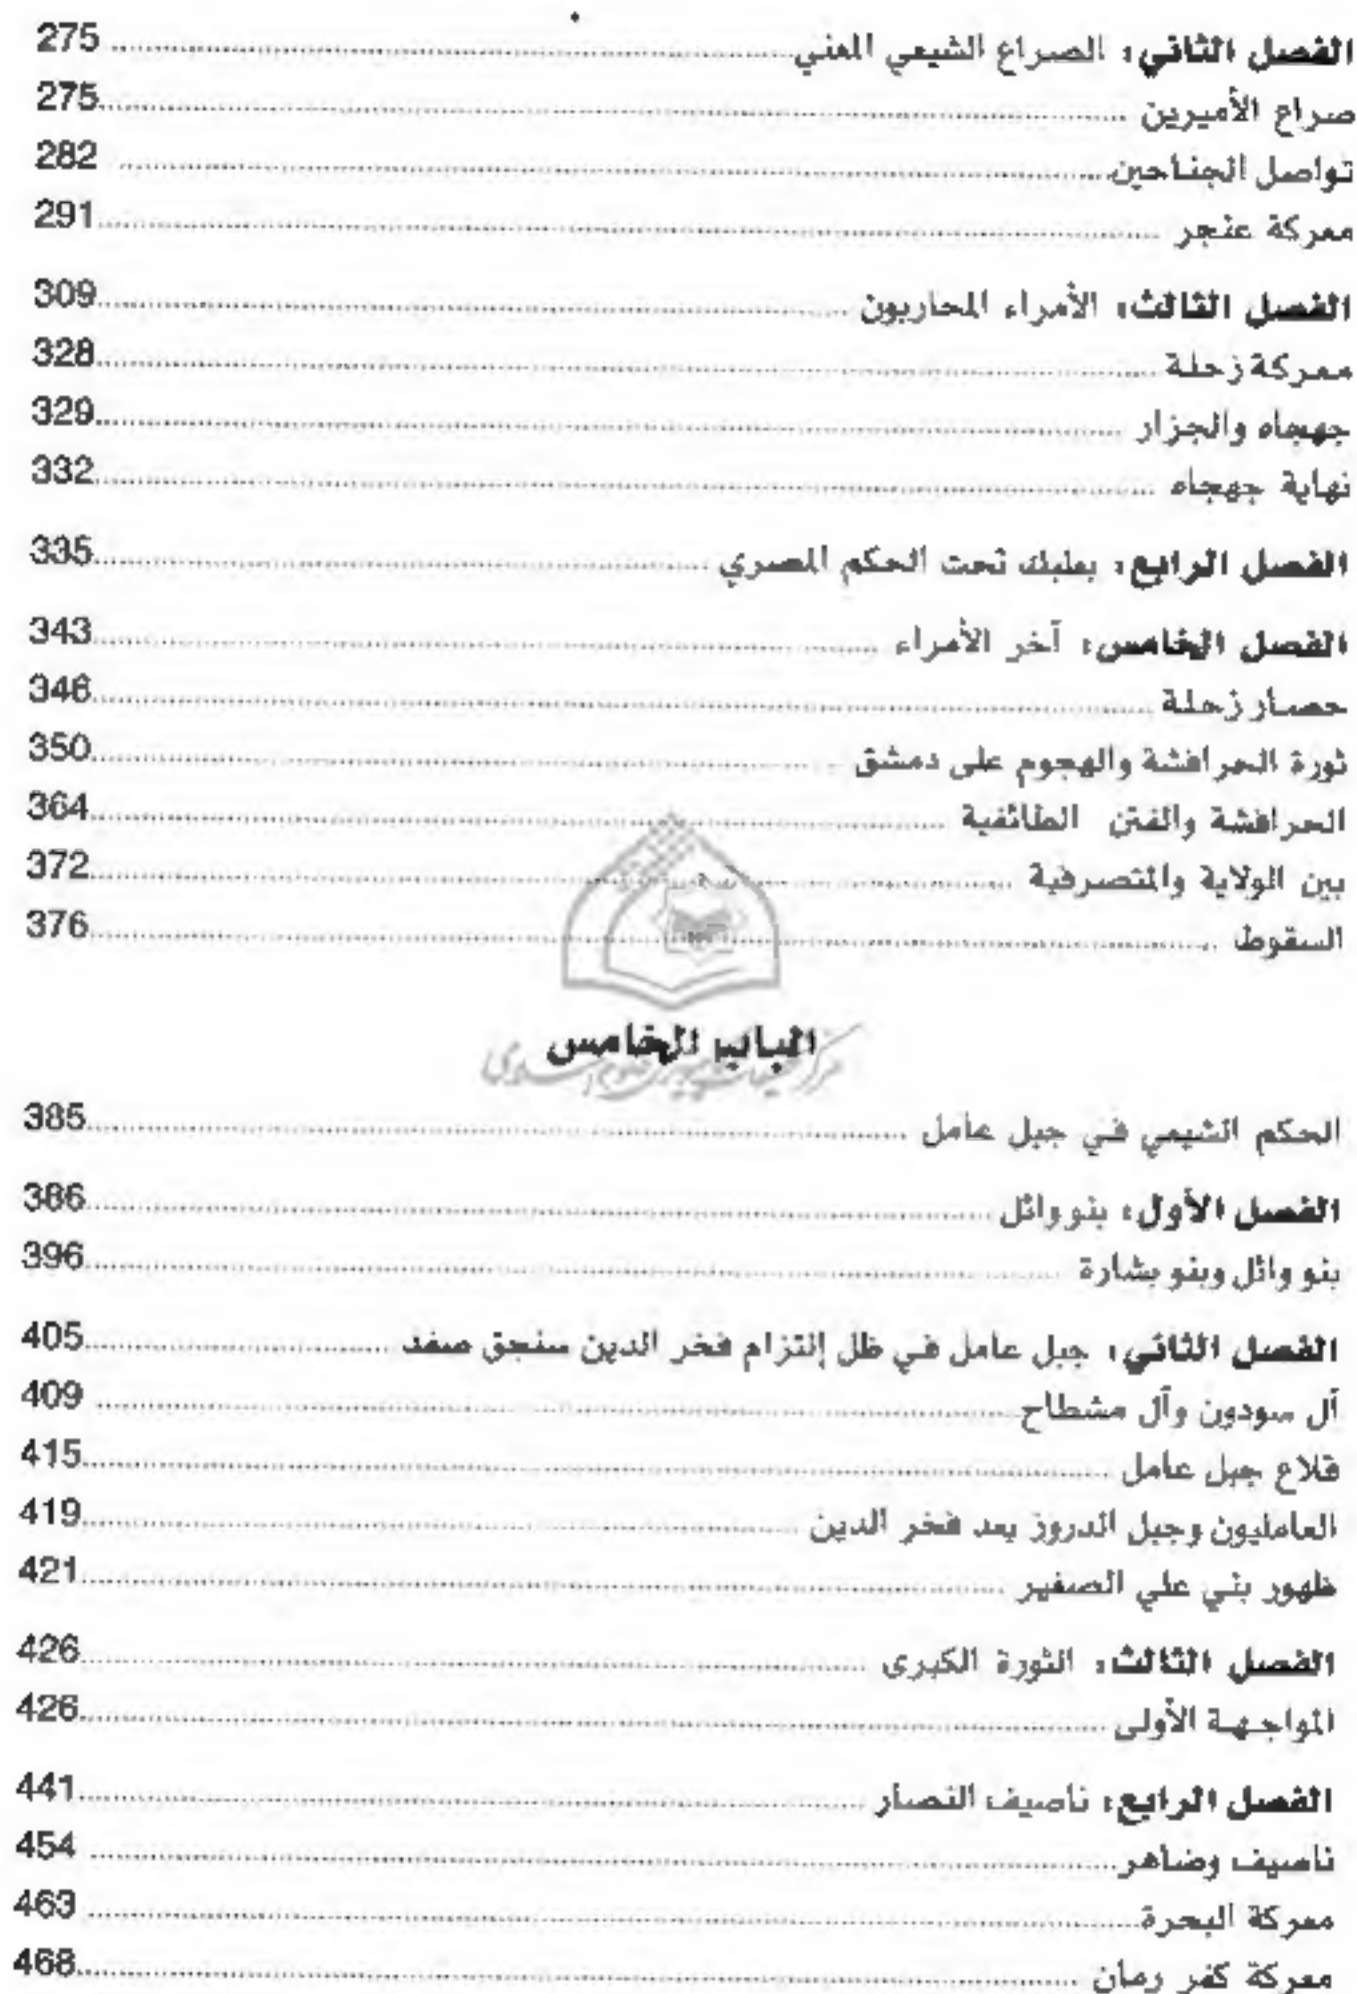 الفصل الثاني: الصراع الشيعي المعني 275
صراع الأميرين 275
تواصل الجناحين 282
معركة عنجر 291
الفصل الثالث: الأمراء المحاربون 309
معركة زحلة 328
جهجاه والجزار 329
نهاية جهجاه 332
الفصل الرابع: بعلبك تحت الحكم المصري 335
الفصل الخامس: آخر الأمراء 343
حصار زحلة 346
ثورة الحرافشة والهجوم على دمشق 350
الحرافشة والفتن الطائفية 364
بين الولاية والمتصرفية 372
السقوط 376
الباب الخامس
الحكم الشيعي في جبل عامل 385
الفصل الأول: بنو وائل 386
بنو وائل وبنو بشارة 396
الفصل الثاني: جبل عامل في ظل إلتزام فخر الدين سنجق صفد 405
آل سودون وآل مشطاح 409
قلاع جبل عامل 415
العامليون وجبل الدروز بعد فخر الدين 419
ظهور بني علي الصغير 421
الفصل الثالث: الثورة الكبرى 426
المواجهة الأولى 426
الفصل الرابع: ناصيف النصار 441
ناصيف وضاهر 454
معركة البحرة 463
معركة كفر رمان 468